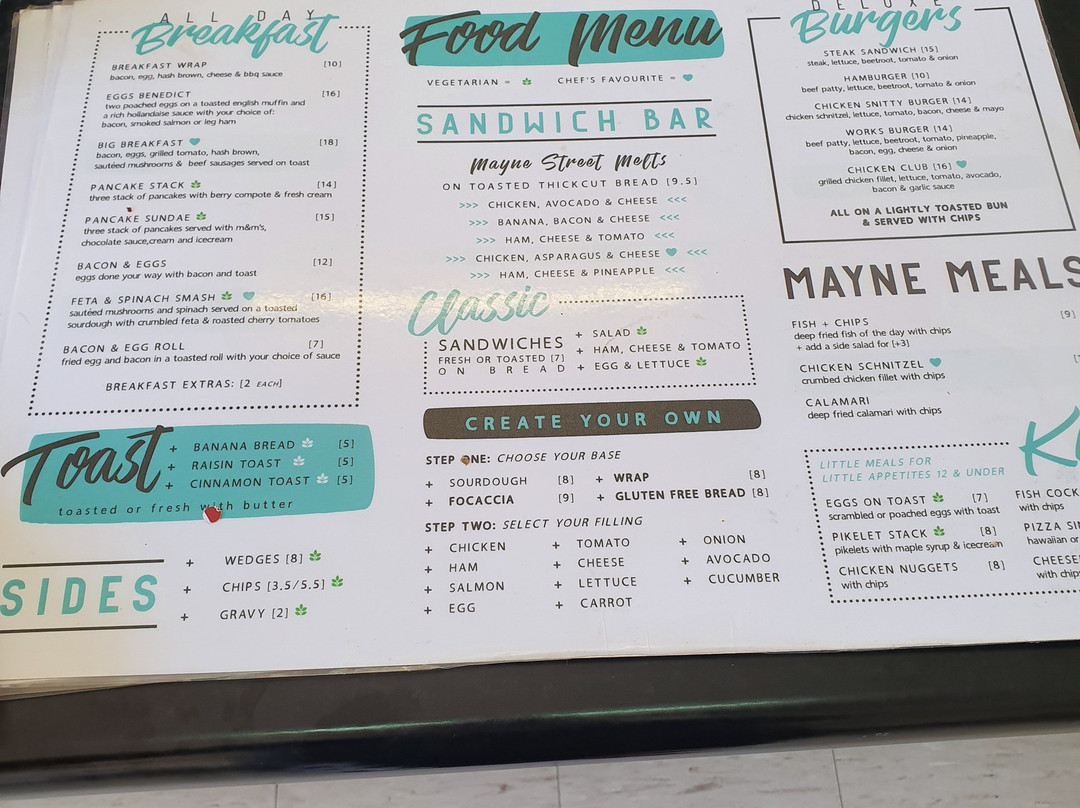 ALL DAY
Breakfast
BREAKFAST WRAP [10]
bacon, egg, hash brown, cheese & bbq sauce
EGGS BENEDICT [16]
two poached eggs on a toasted english muffin and
a rich hollandaise sauce with your choice of:
bacon, smoked salmon or leg ham
BIG BREAKFAST [18]
bacon, eggs, grilled tomato, hash brown,
sautéed mushrooms & beef sausages served on toast
PANCAKE STACK [14]
three stack of pancakes with berry compote & fresh cream
PANCAKE SUNDAE [15]
three stack of pancakes served with m&m's,
chocolate sauce,cream and icecream
BACON & EGGS [12]
eggs done your way with bacon and toast
FETA & SPINACH SMASH [16]
sautéed mushrooms and spinach served on a toasted
sourdough with crumbled feta & roasted cherry tomatoes
BACON & EGG ROLL [7]
fried egg and bacon in a toasted roll with your choice of sauce
BREAKFAST EXTRAS: [2 EACH]
Toast
+ BANANA BREAD [5]
+ RAISIN TOAST [5]
+ CINNAMON TOAST [5]
toasted or fresh with butter
SIDES
+ WEDGES [8]
+ CHIPS [3.5/5.5]
+ GRAVY [2]
Food Menu
VEGETARIAN = CHEF'S FAVOURITE =
SANDWICH BAR
Mayne Street Melts
ON TOASTED THICKCUT BREAD [9.5]
>>> CHICKEN, AVOCADO & CHEESE <<<
>>> BANANA, BACON & CHEESE <<<
>>> HAM, CHEESE & TOMATO <<<
>>> CHICKEN, ASPARAGUS & CHEESE <<<
>>> HAM, CHEESE & PINEAPPLE <<<
Classic
SANDWICHES
FRESH OR TOASTED [7]
ON BREAD
+ SALAD
+ HAM, CHEESE & TOMATO
+ EGG & LETTUCE
CREATE YOUR OWN
STEP ONE: CHOOSE YOUR BASE
+ SOURDOUGH [8] + WRAP [8]
+ FOCACCIA [9] + GLUTEN FREE BREAD [8]
STEP TWO: SELECT YOUR FILLING
+ CHICKEN + TOMATO + ONION
+ HAM + CHEESE + AVOCADO
+ SALMON + LETTUCE + CUCUMBER
+ EGG + CARROT
DELUXE
Burgers
STEAK SANDWICH [15]
steak, lettuce, beetroot, tomato & onion
HAMBURGER [10]
beef patty, lettuce, beetroot, tomato & onion
CHICKEN SNITTY BURGER [14]
chicken schnitzel, lettuce, tomato, bacon, cheese & mayo
WORKS BURGER [14]
beef patty, lettuce, beetroot, tomato, pineapple,
bacon, egg, cheese & onion
CHICKEN CLUB [16]
grilled chicken fillet, lettuce, tomato, avocado,
bacon & garlic sauce
ALL ON A LIGHTLY TOASTED BUN
& SERVED WITH CHIPS
MAYNE MEALS
FISH + CHIPS [9]
deep fried fish of the day with chips
+ add a side salad for [+3]
CHICKEN SCHNITZEL
crumbed chicken fillet with chips
CALAMARI
deep fried calamari with chips
LITTLE MEALS FOR
LITTLE APPETITES 12 & UNDER
EGGS ON TOAST [7]
scrambled or poached eggs with toast
PIKELET STACK [8]
pikelets with maple syrup & icecream
CHICKEN NUGGETS [8]
with chips
FISH COCK
with chips
PIZZA
hawaiian or
CHEESE
with chips